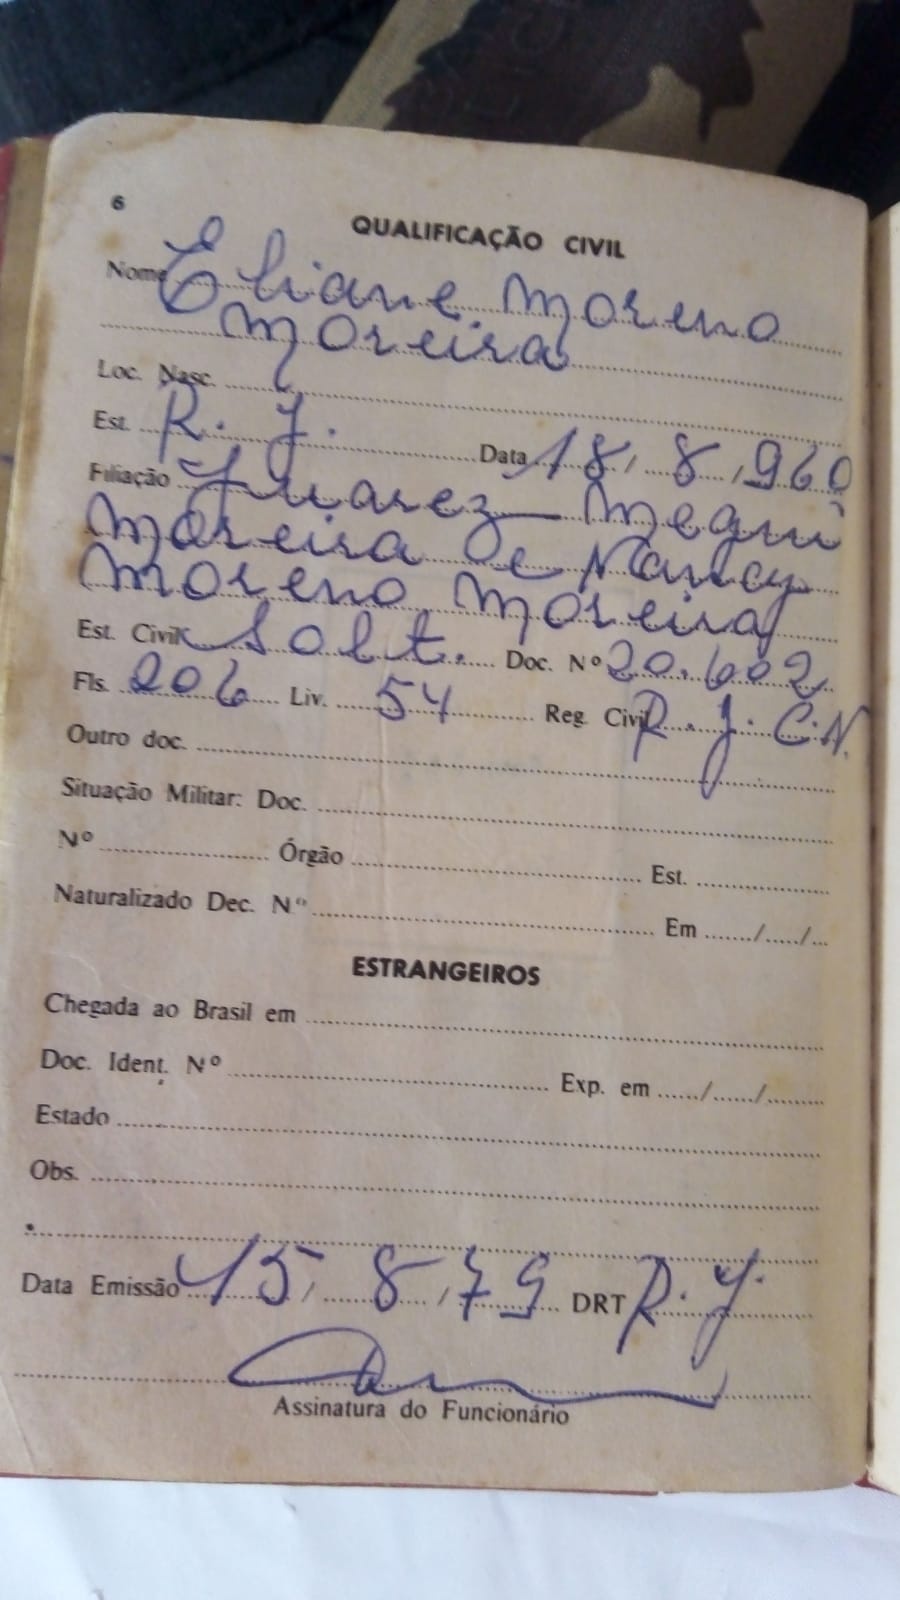 6
QUALIFICAÇÃO CIVIL
Nome Eliane Moreno
Moreira
Loc. Nasc.
Est. R. J. Data 18 / 8 / 960
Filiação Juarez Megui
Moreira e Nancy
Moreno Moreira
Est. Civil Solt. Doc. Nº 20.602
Fls. 206 Liv. 54 Reg. Civil R. J. C. N.
Outro doc.
Situação Militar: Doc.
Nº Órgão Est.
Naturalizado Dec. N.º Em / /
ESTRANGEIROS
Chegada ao Brasil em
Doc. Ident. Nº Exp. em / /
Estado
Obs.
Data Emissão 15 / 8 / 79 DRT R. J.
Assinatura do Funcionário